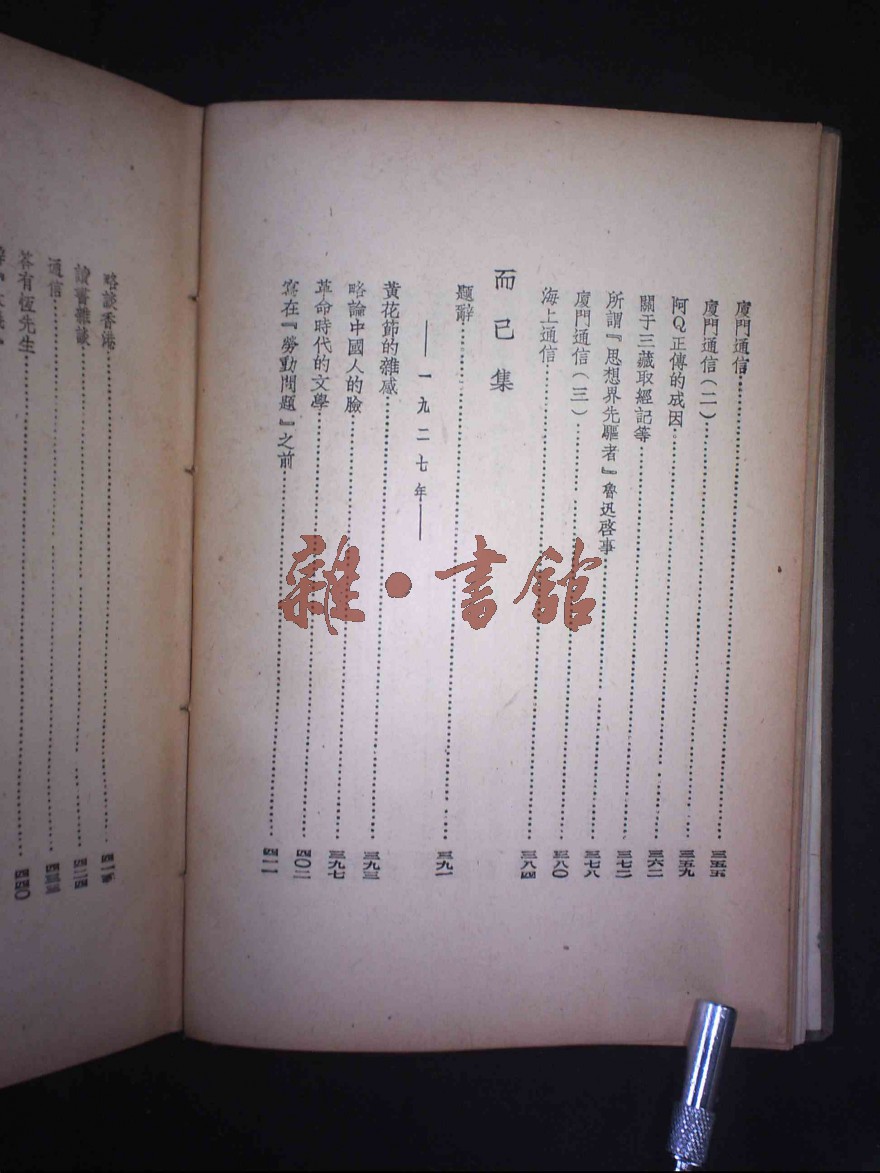 廈門通信⋯⋯三五五
廈門通信（二）⋯⋯三五九
阿Q正傳的成因⋯⋯三六二
關于三藏取經記等⋯⋯三七二
所謂『思想界先驅者』魯迅啓事⋯⋯三七八
廈門通信（三）⋯⋯三八〇
海上通信⋯⋯三八四
而已集
題辭⋯⋯三九一
——一九二七年——
黃花節的雜感⋯⋯三九三
略論中國人的臉⋯⋯三九七
革命時代的文學⋯⋯四〇二
寫在『勞動問題』之前⋯⋯四一一
略談香港⋯⋯
讀書雜談⋯⋯四二四
通信⋯⋯四三三
答有恆先生
四四〇
雜·書館